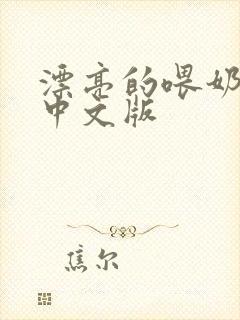 漂亮的喂奶
中文版
焦尔